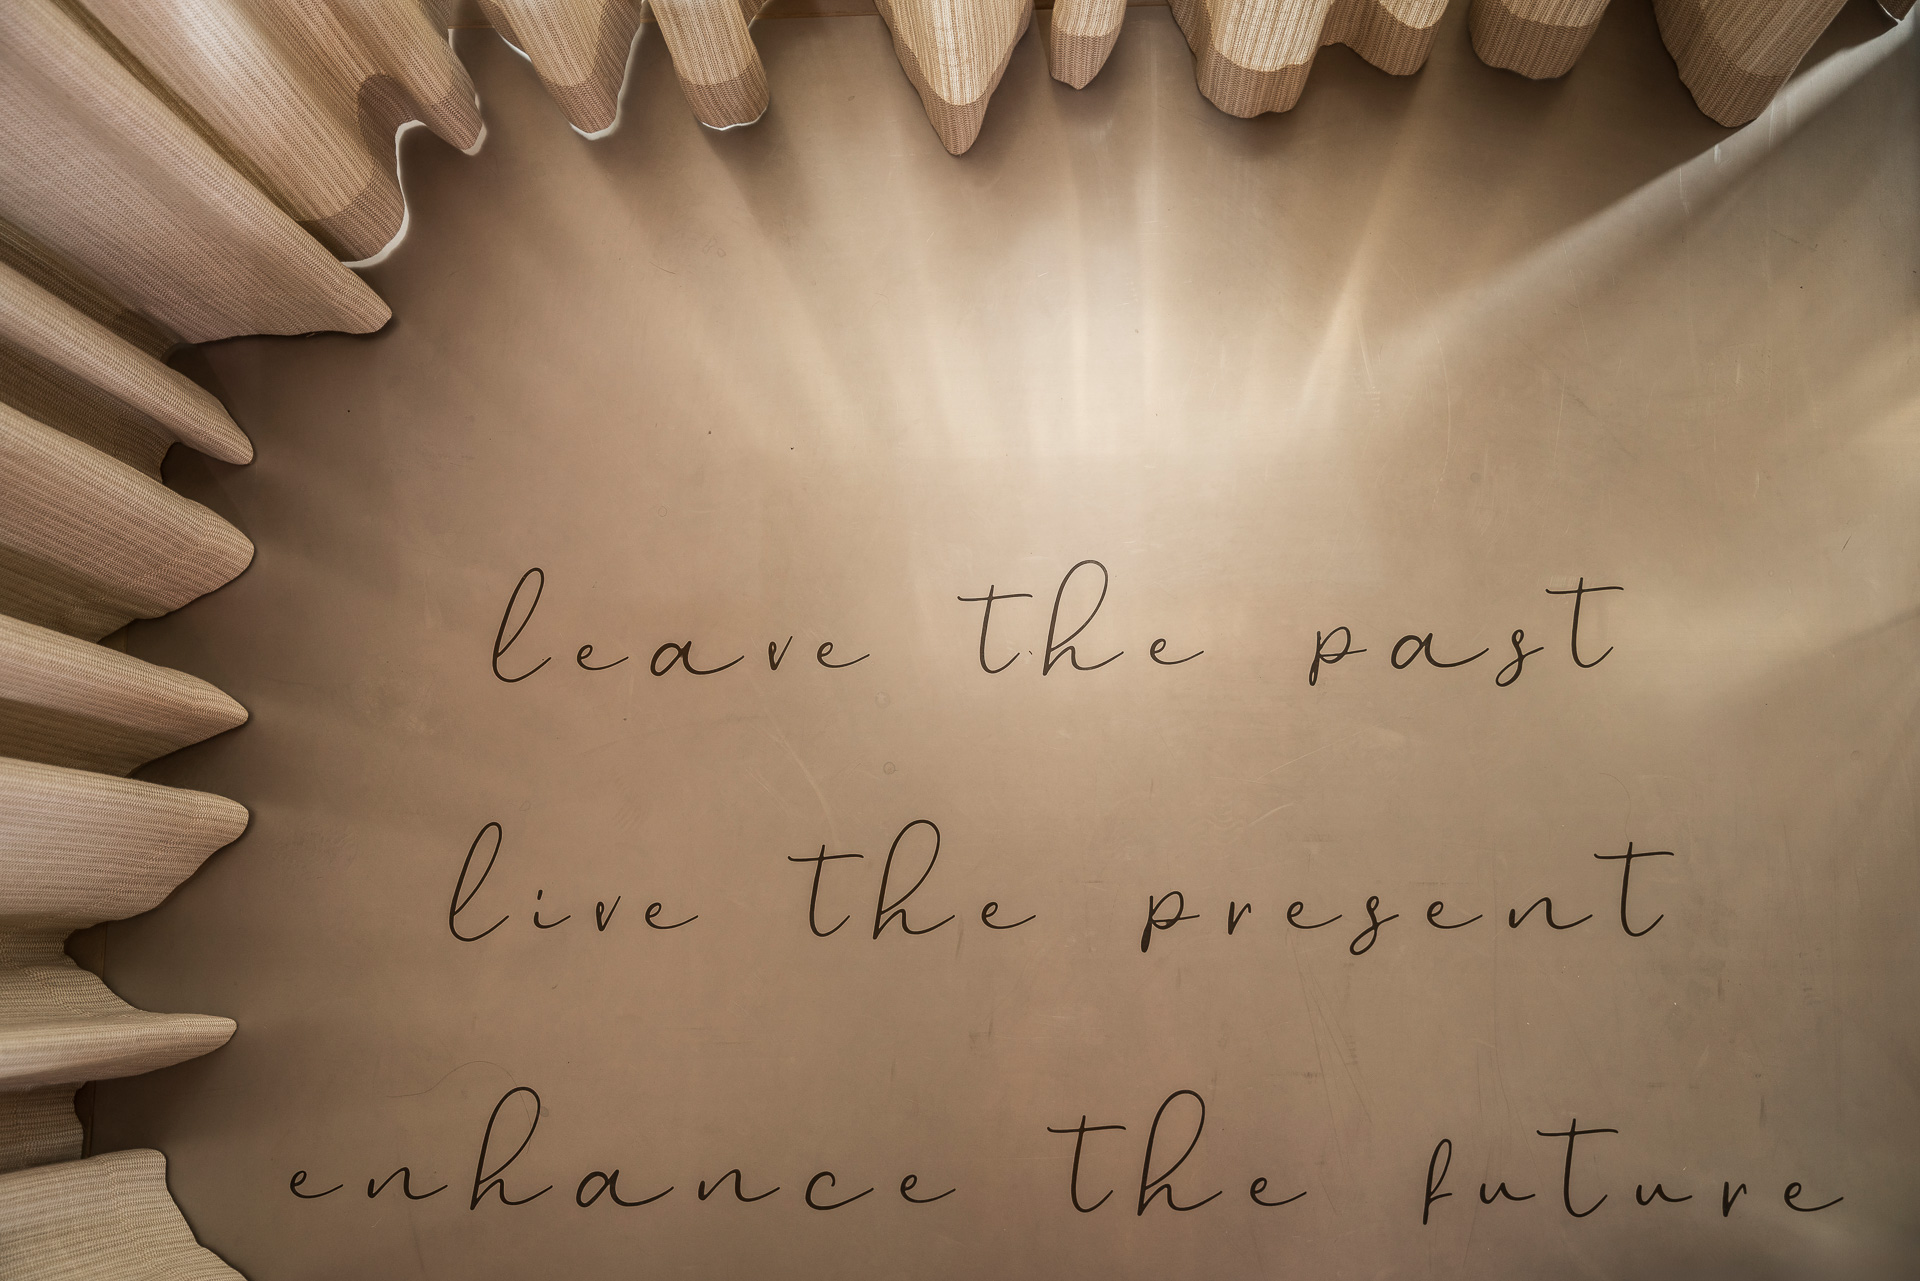 leave the past
live the present
enhance the future